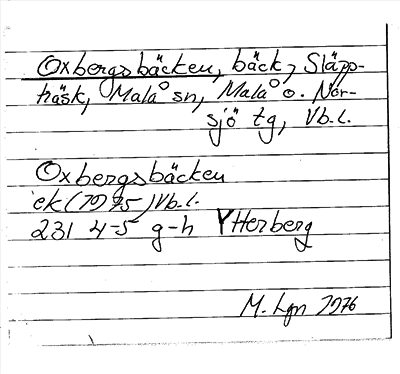 Oxbergsbäcken, bäck, Släpp-
träsk, Malå sn, Malå o. Nor-
sjö tg, Vb.l.
Oxbergsbäcken
ek (1975) Vb.l.
231 4-5 g-h Ytterberg
M. Lgn 1976